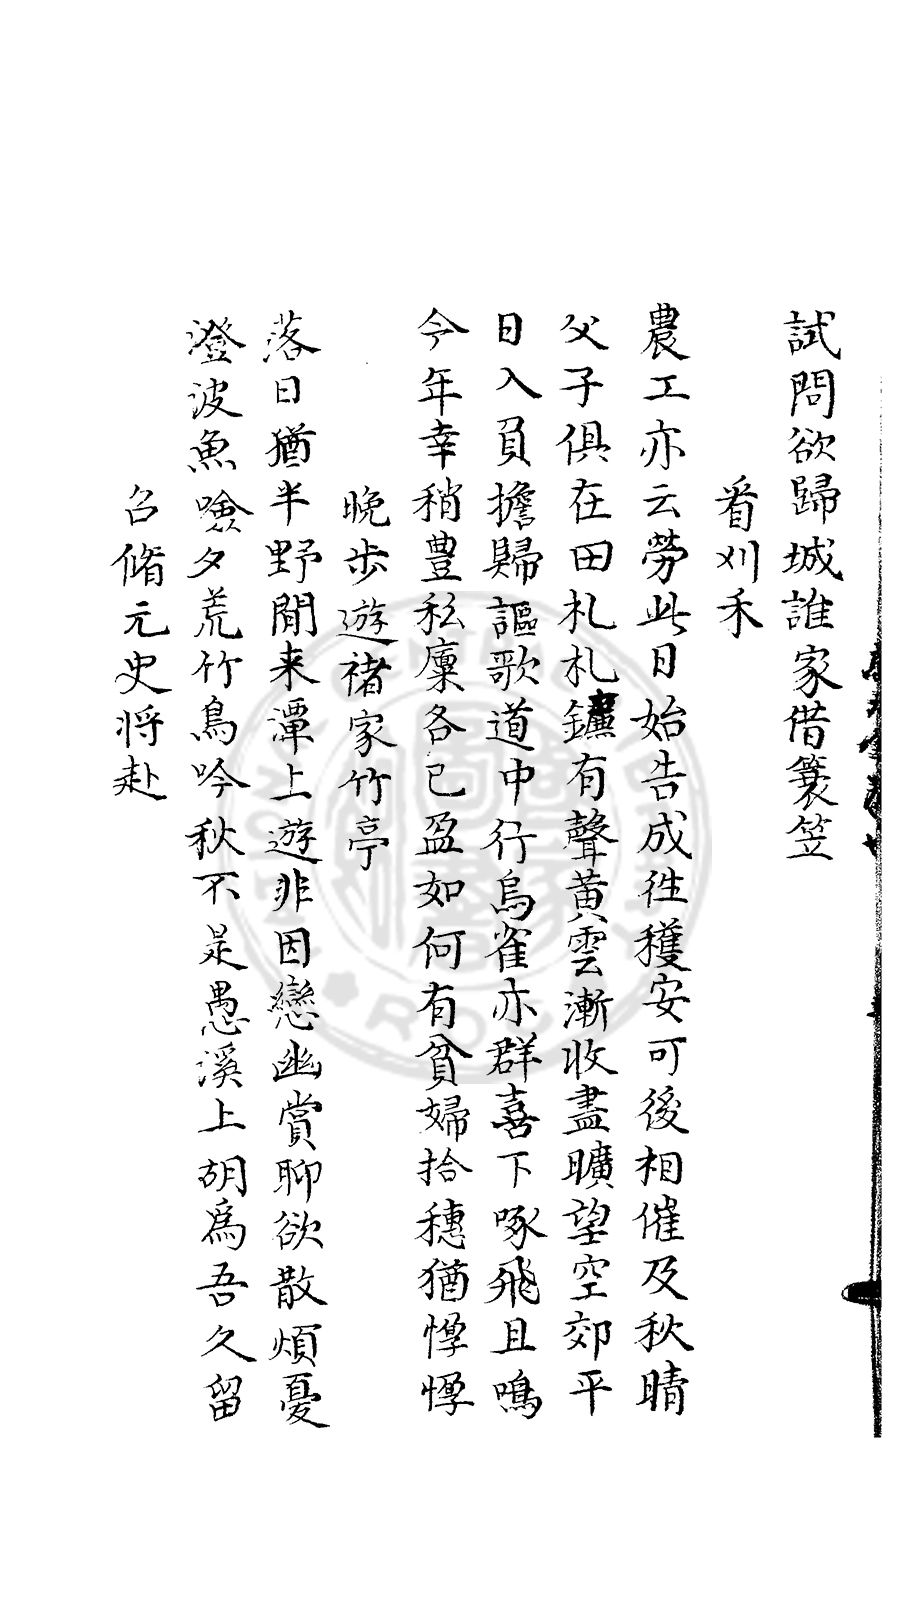 試問欲歸城誰家借簑笠
看刈禾
農工亦云勞此日始告成徃穫安可後相催及秋晴
父子俱在田札札鐮有聲黄雲漸收盡曠望空郊平
日入負擔歸謳歌道中行鳥雀亦群喜下啄飛且鳴
今年幸稍豊私廪各已盈如何有貧婦拾穗猶惸惸
晚步遊褚家竹亭
落日猶半野閒来潭上遊非因戀幽賞聊欲散煩憂
澄波魚噞夕荒竹鳥吟秋不是愚溪上胡爲吾久留
召脩元史将赴